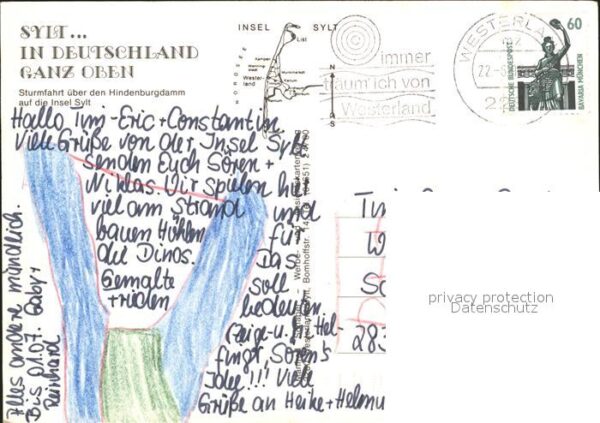 SYLT...
IN DEUTSCHLAND
GANZ OBEN
Sturmfahrt über den Hindenburgdamm
auf die Insel Sylt
INSEL SYLT
NORDSEE
List
Kampen
Wester-
land
N
S
immer
träum' ich von
Westerland
WESTERLA
22.-6
22
60
DEUTSCHE BUNDESPOST
BAVARIA MÜNCHEN
Hallo Tim-Eric + Constantin
Viele Grüße von der Insel Sylt
senden Euch Sören +
Niklas. Wir spielen hier
viel am Strand und
bauen Höhlen für
die Dinos. Das
Gemalte soll
bedeuten
Sören's
Idee!!! Viele
Grüße an Heike + Helmu
Alles andere mündlich.
Bis 01.07. Gaby +
Reinhard
Bomhoffstr.
Tim
W
283
privacy protection
Datenschutz